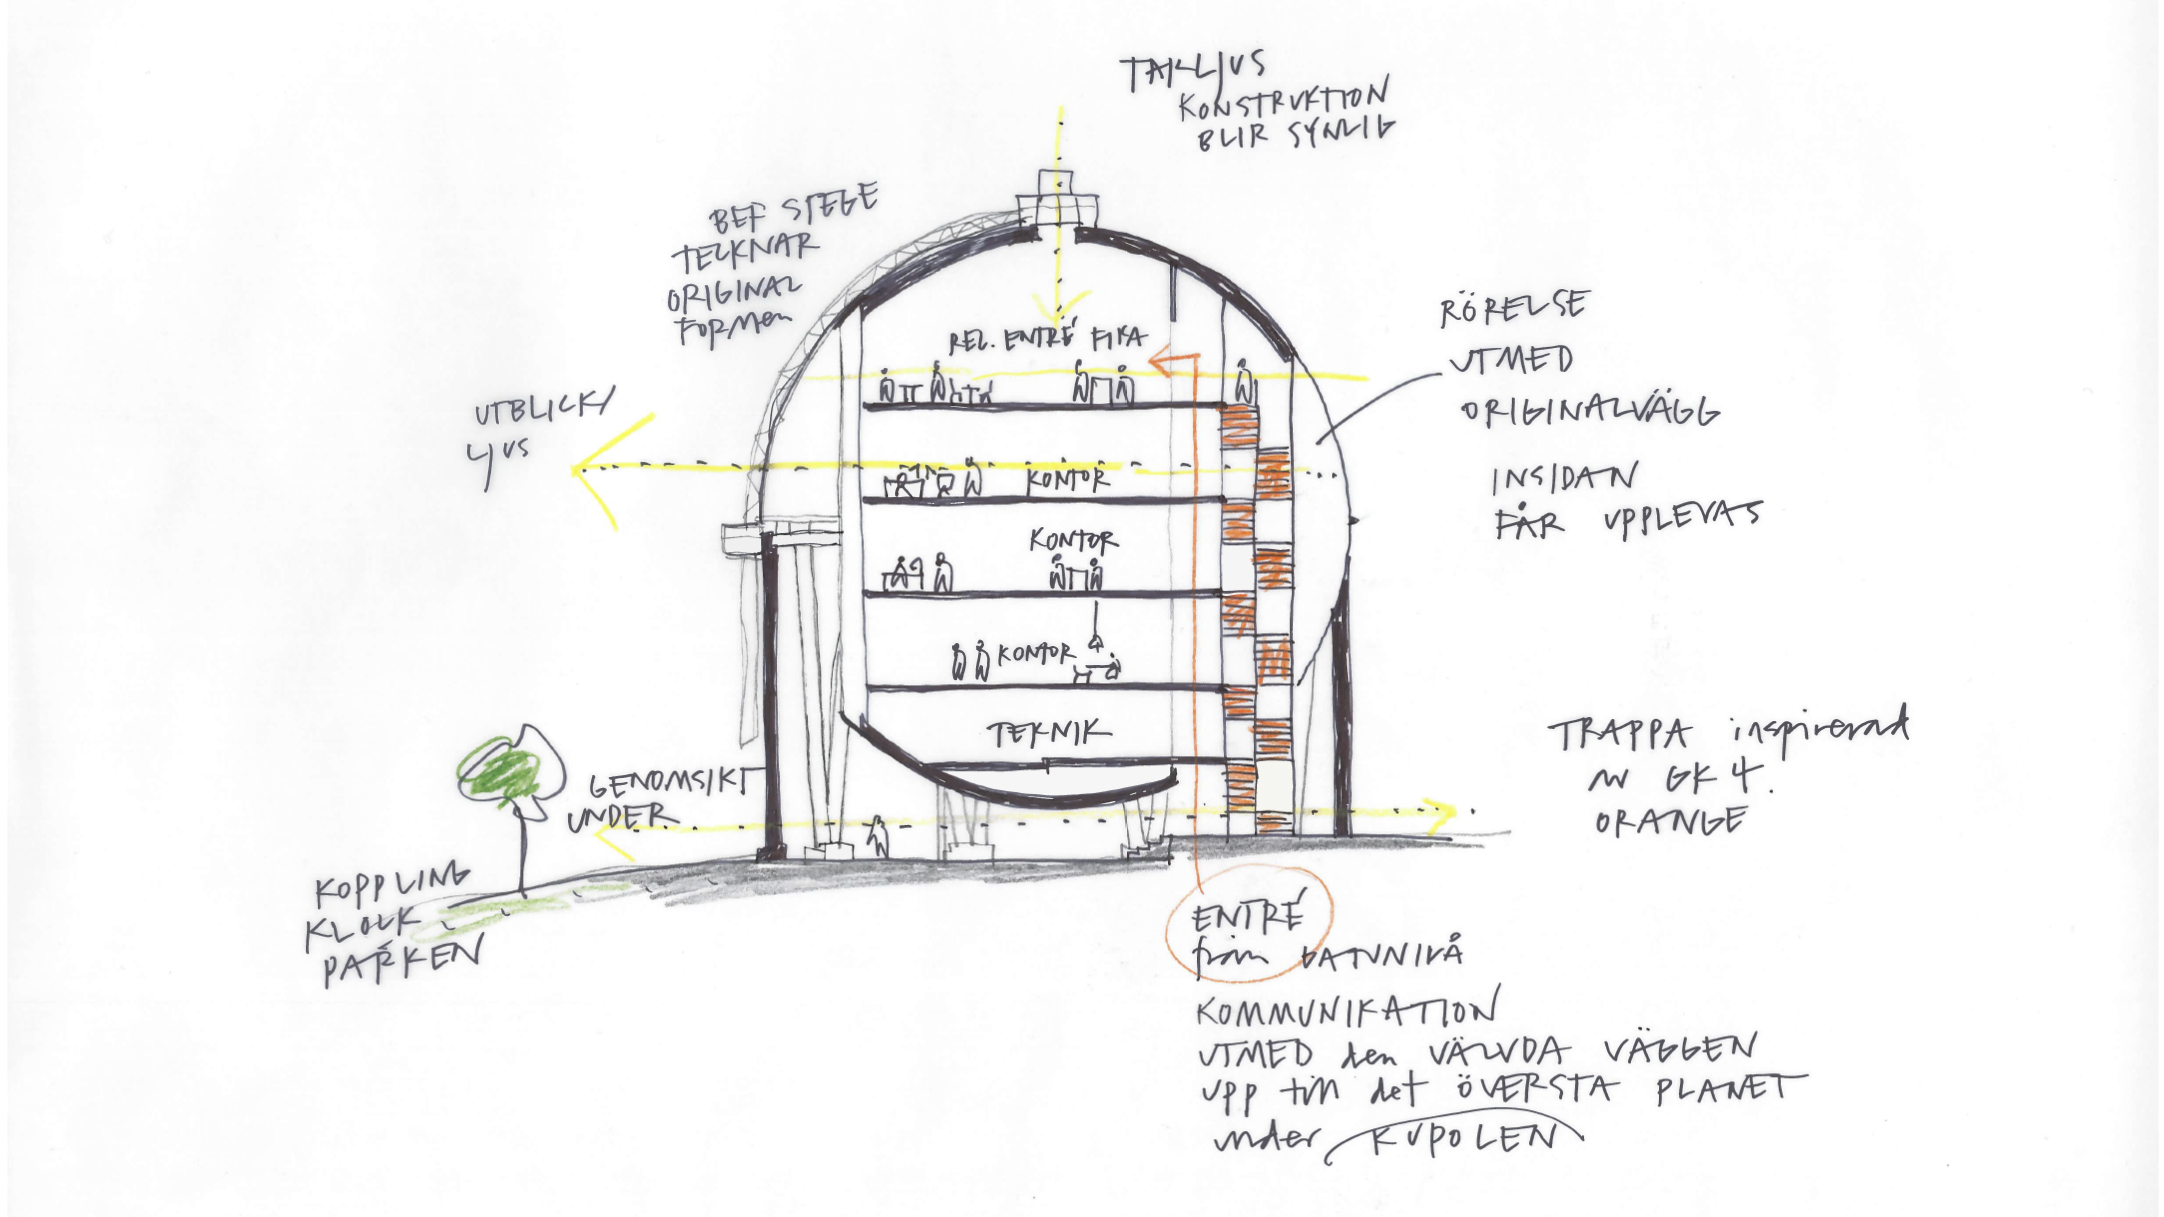 TAKLJUS
KONSTRUKTION
BLIR SYNLIG
BEF STEGE
TECKNAR
ORIGINAL
FORMEN
REC. ENTRÉ FIKA
RÖRELSE
UTMED
ORIGINALVÄGG
INSIDAN
FÅR UPPLEVAS
UTBLICK/
LJUS
KONTOR
KONTOR
KONTOR
TEKNIK
TRAPPA inspirerad
av GK 4.
ORANGE
GENOMSIKT
UNDER
KOPPLING
KLOCK
PARKEN
ENTRÉ
från GATUNIVÅ
KOMMUNIKATION
UTMED den VÄLVDA VÄGGEN
upp till det ÖVERSTA PLANET
under KUPOLEN